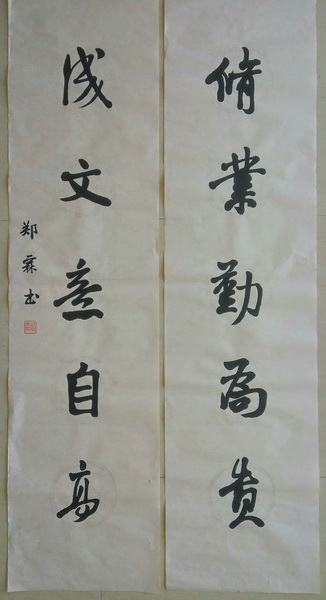 脩業勤為貴
成文意自高
郑霖书